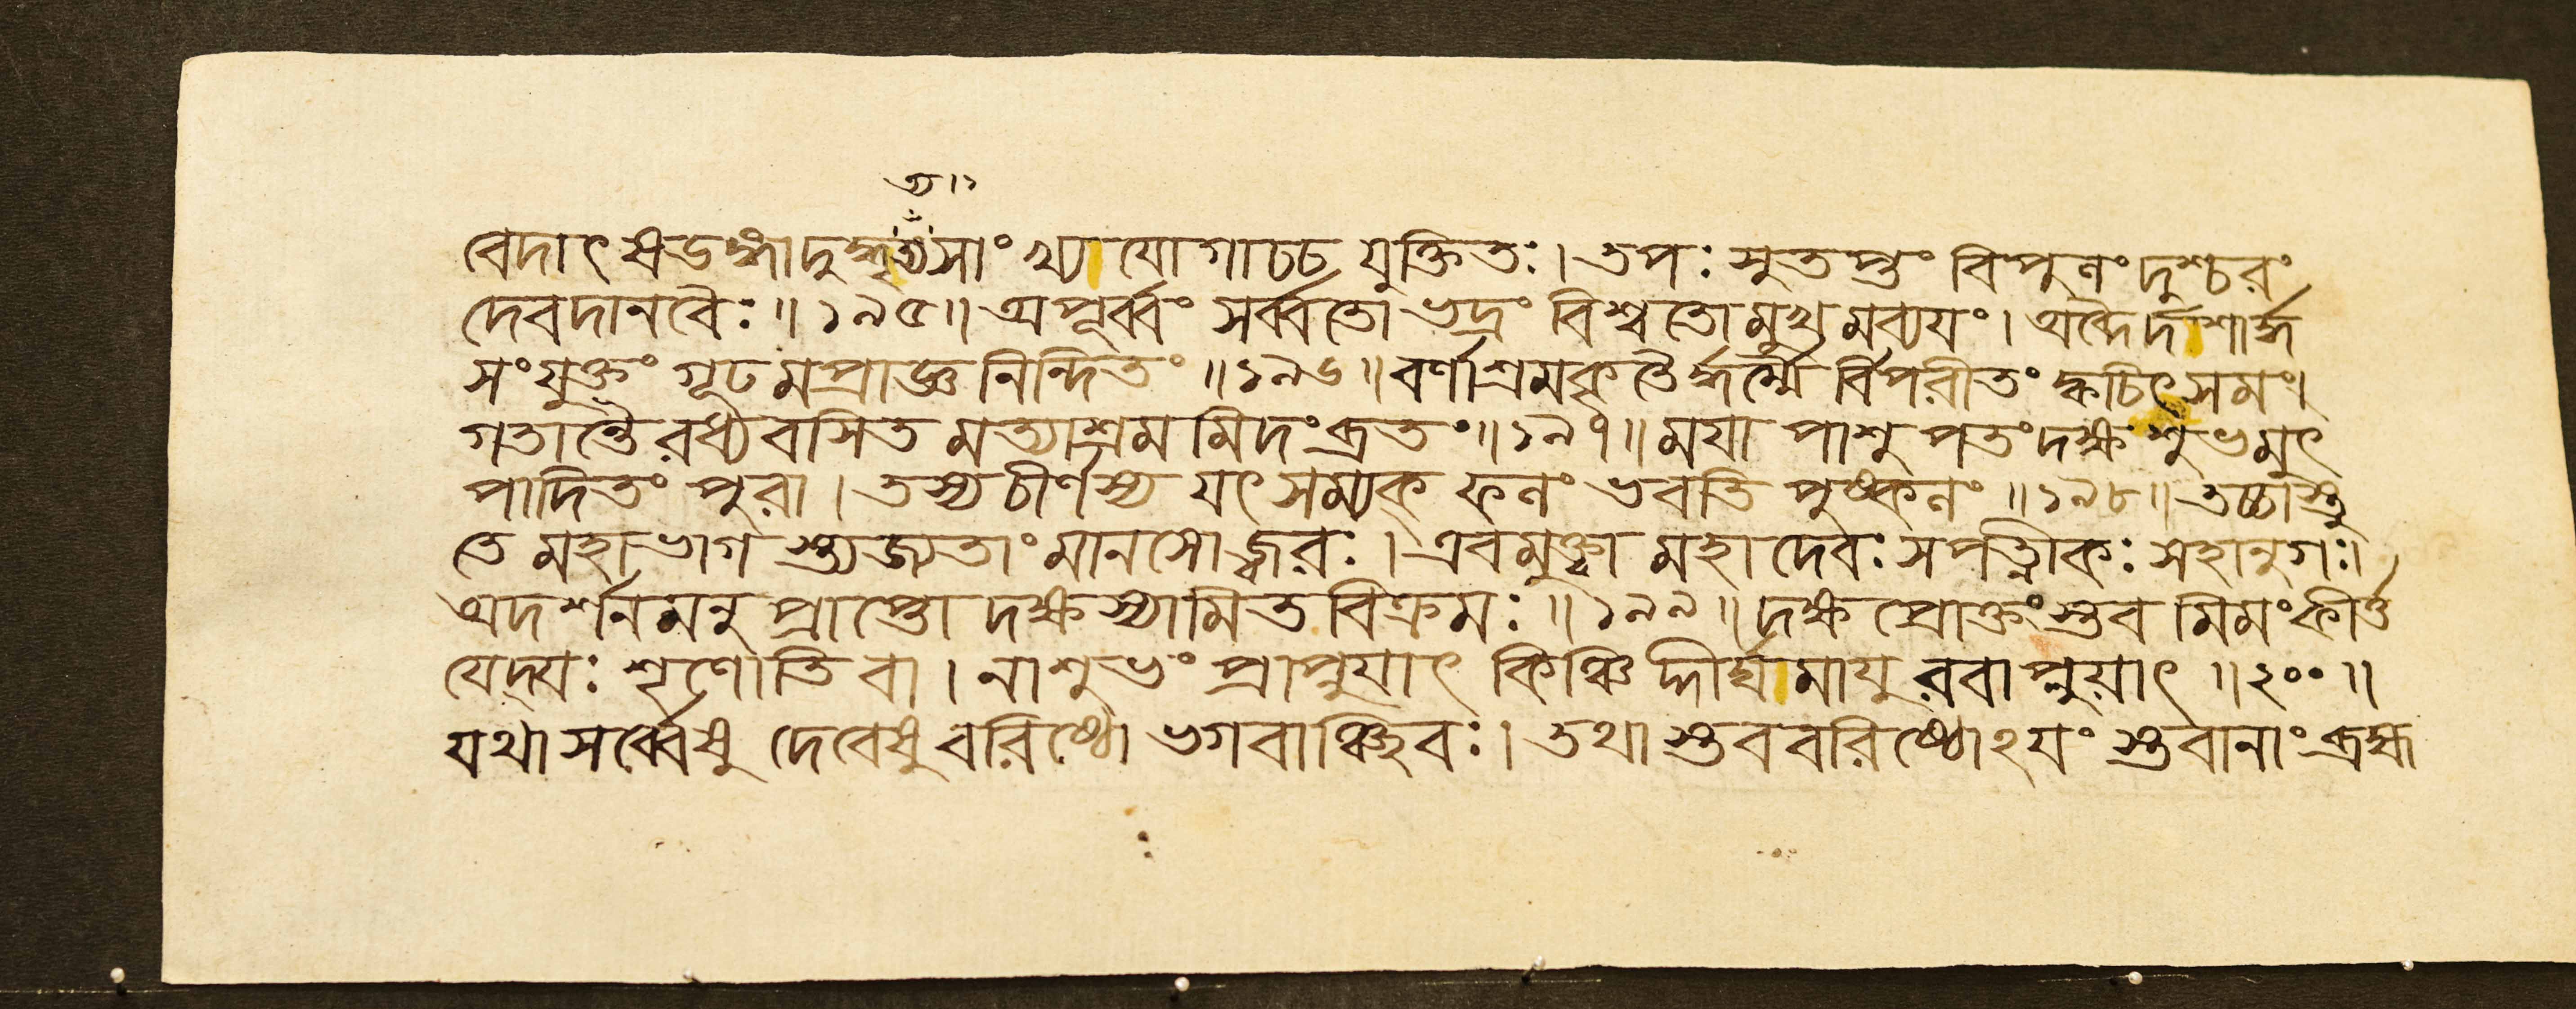 ত্য।১
বেদাৎ ষডঙ্গাদুদ্ধৃত্যসাং খ্যাযোগাচ্চ যুক্তিতঃ। তপঃ সুতপ্তং বিপুলং দুশ্চরং
দেবদানবৈঃ॥১৯৫॥ অপূর্ব্বং সর্ব্বতোভদ্রং বিশ্বতোমুখমব্যযং। অব্দৈর্দাশার্দ্ধ
সংযুক্তং গূঢমপ্রাজ্ঞনিন্দিতং॥১৯৬॥ বর্ণাশ্রমকৃতৈর্দ্ধর্ম্মৈ র্বিপরীতং ক্বচিৎসমং।
গতান্তৈরধ্যবসিত মত্যাশ্রমমিদংব্রতং॥১৯৭॥ মযা পাশুপতং দক্ষ শুভমুৎ
পাদিতং পুরা। তস্য চীর্ণস্য যৎসম্যক্ ফলং ভবতি পুষ্কলং॥১৯৮॥ তচ্চাস্তু
তে মহাভাগ ত্যজ্যতাং মানসোজ্বরঃ। এবমুক্ত্বা মহাদেবঃ সপত্নীকঃ সহানুগঃ।
অদর্শনমনুপ্রাপ্তো দক্ষস্যামিতবিক্রমঃ॥১৯৯॥ দক্ষপ্রোক্তং স্তবমিমং কীর্ত্ত
যেদ্যঃ শৃণোতি বা। নাশুভং প্রাপ্নুযাৎ কিঞ্চিদ্দীর্ঘামাযুরবাপ্নুয়াৎ॥২০০॥
যথা সর্ব্বেষু দেবেষু বরিষ্ঠো ভগবাঞ্ছিবঃ। তথা স্তববরিষ্ঠোঽযং স্তবানাং ব্রহ্ম